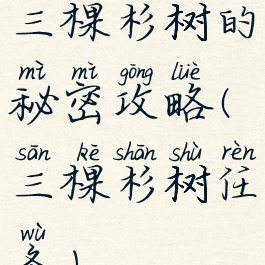 三棵杉树的
mì mì gōng lüè
秘密攻略(
sān kē shān shù rèn
三棵杉树任
wù
务)